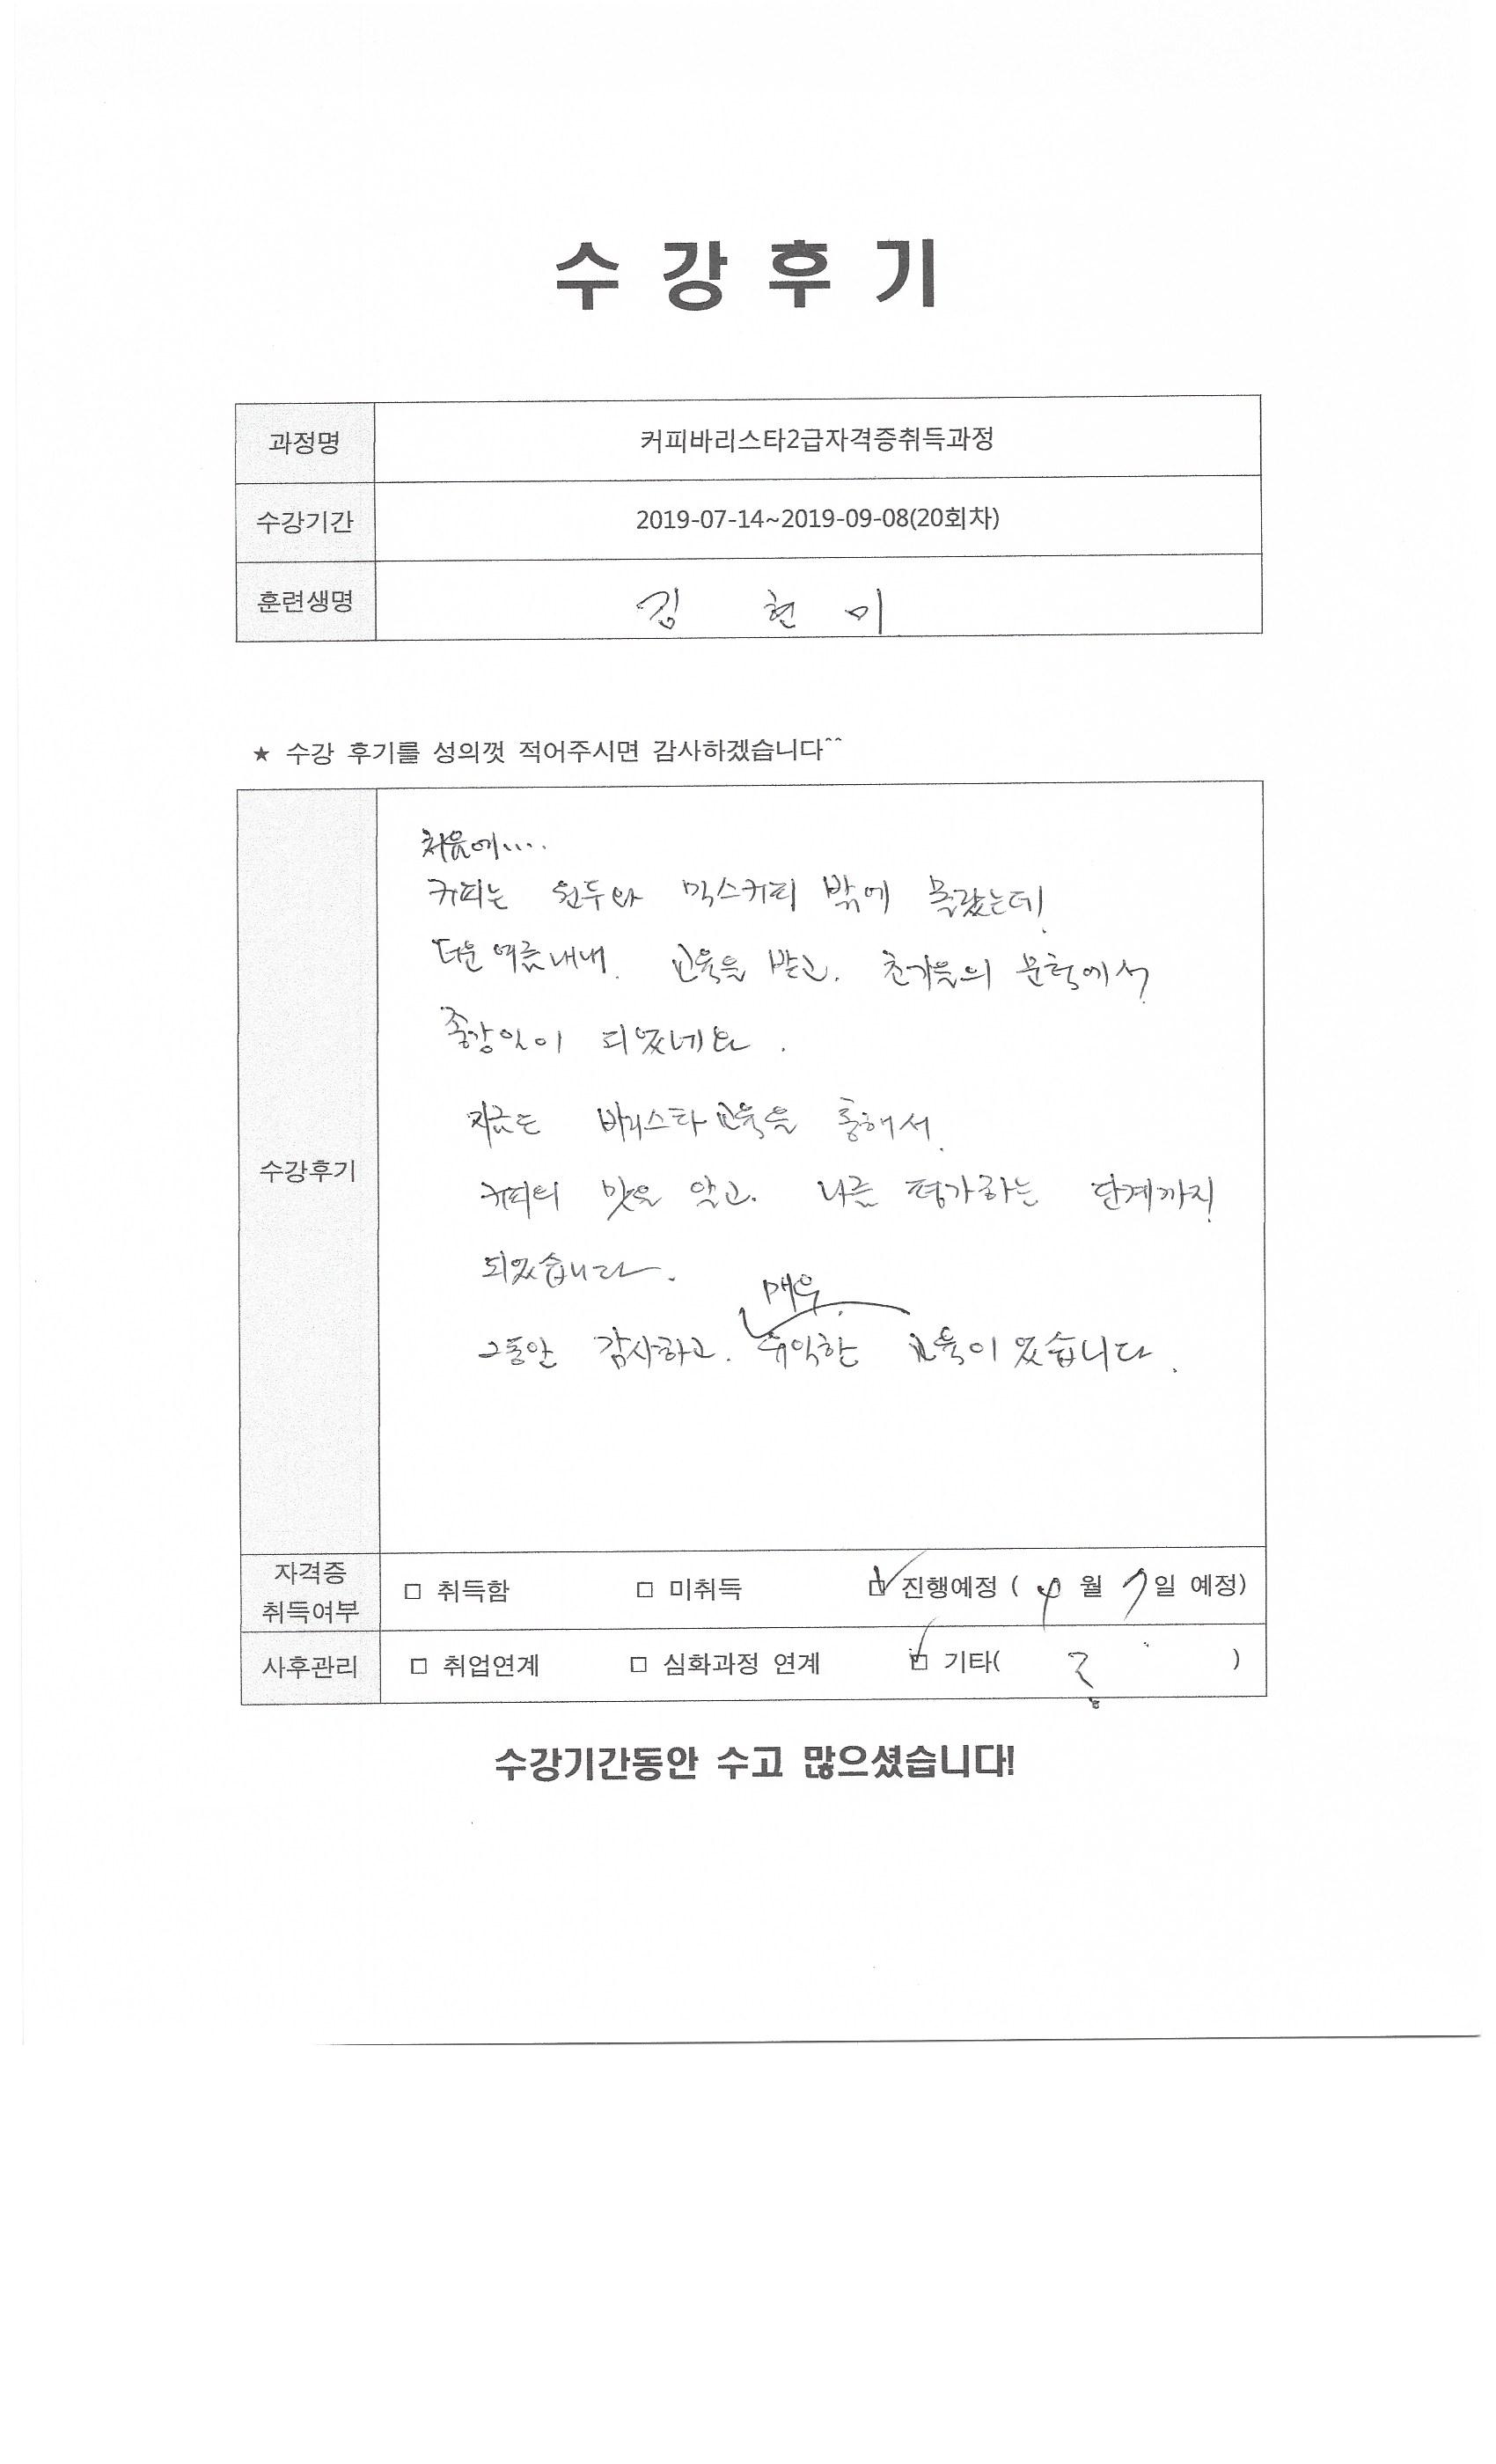 수강후기
과정명 커피바리스타2급자격증취득과정
수강기간 2019-07-14~2019-09-08(20회차)
훈련생명 김 현 미
★ 수강 후기를 성의껏 적어주시면 감사하겠습니다^^
수강후기
처음에....
커피는 원두와 믹스커피 밖에 몰랐는데,
더운 여름내내. 교육을 받고. 초가을의 문턱에서
종강일이 되었네요.
지금은 바리스타 교육을 통해서
커피의 맛을 알고. 나름 평가하는 단계까지
되었습니다.
매우
그동안 감사하고. 유익한 교육이었습니다.
자격증 취득여부 □ 취득함 □ 미취득 ☑ 진행예정 ( 월 7일 예정)
사후관리 □ 취업연계 □ 심화과정 연계 ☑ 기타( )
수강기간동안 수고 많으셨습니다!